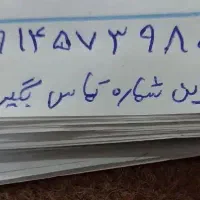 ۹۱۴۵۷۳۹۸۰
این شماره تماس بگیر